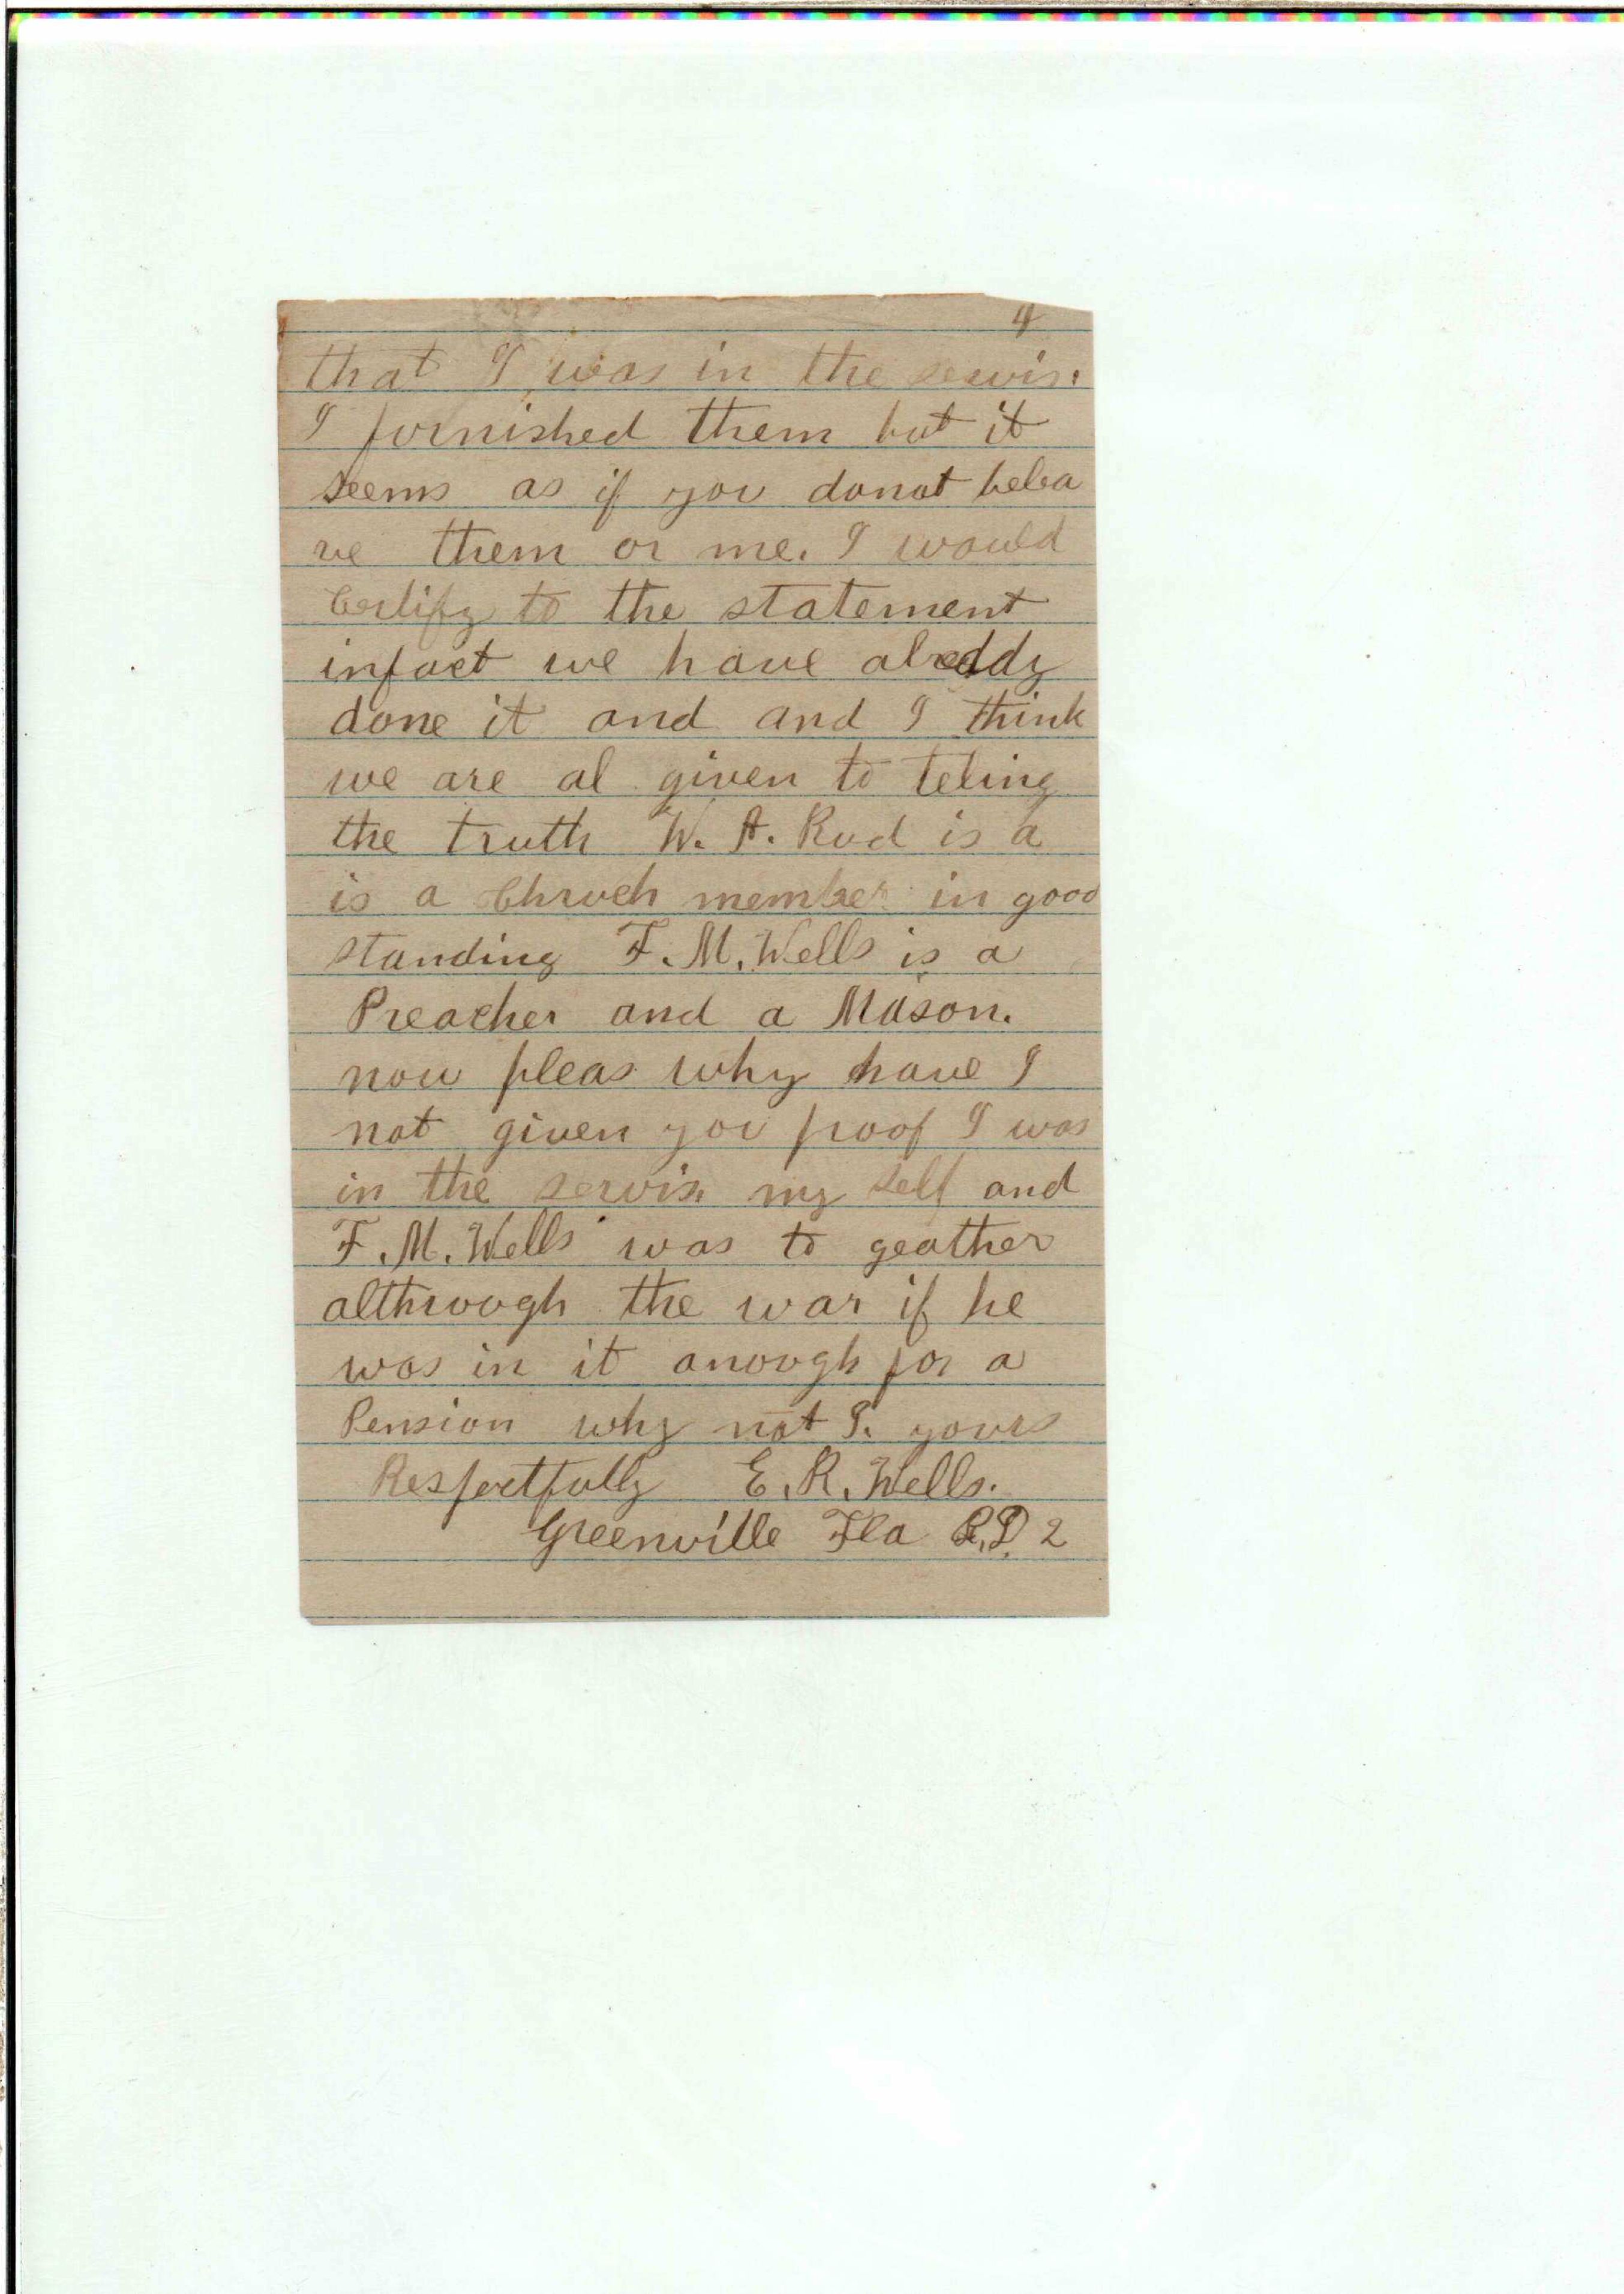 4
that I was in the servis.
I furnished them but it
seems as if you donot belea
ve them or me. I would
Certify to the statement
infact we have alreddy
done it and and I think
we are al given to teling
the truth W. A. Rud is a
is a Chruch member in good
standing F. M. Wells is a
Preacher and a Mason.
now pleas why have I
not given you proof I was
in the servis. my self and
F. M. Wells was to geather
althrough the war if he
was in it anough for a
Pension why not I. yours
Respectfully E. R. Wells.
Greenville Fla R.D. 2